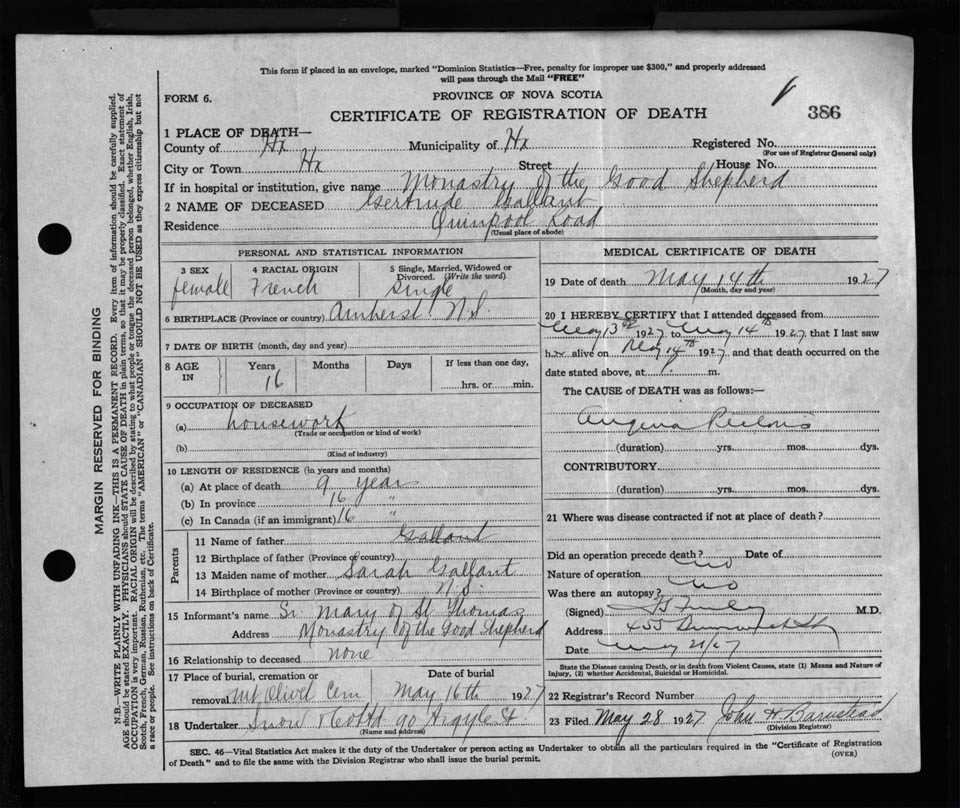 This form if placed in an envelope, marked "Dominion Statistics—Free, penalty for improper use $300," and properly addressed
will pass through the Mail "FREE"
FORM 6.
PROVINCE OF NOVA SCOTIA
CERTIFICATE OF REGISTRATION OF DEATH
386
MARGIN RESERVED FOR BINDING
N.B.—WRITE PLAINLY WITH UNFADING INK—THIS IS A PERMANENT RECORD. Every item of information should be carefully supplied.
AGE should be stated EXACTLY. PHYSICIANS should STATE CAUSE OF DEATH in plain terms, so that it may be properly classified. Exact statement of
OCCUPATION is very important. RACIAL ORIGIN will be described by stating to what people or tongue the deceased person belonged, whether English, Irish,
Scotch, French, German, Russian, Ruthenian, etc. The terms "AMERICAN" or "CANADIAN" SHOULD NOT BE USED as they express citizenship but not
a race or people. See instructions on back of Certificate.
1 PLACE OF DEATH—
County of Hx Municipality of Hx Registered No.
(For use of Registrar General only)
City or Town Hx Street House No.
If in hospital or institution, give name Monastry of the Good Shepherd
2 NAME OF DECEASED Gertrude Gallant
Residence Quinpool Road
(Usual place of abode)
PERSONAL AND STATISTICAL INFORMATION
3 SEX 4 RACIAL ORIGIN 5 Single, Married, Widowed or
Divorced. (Write the word)
female French Single
6 BIRTHPLACE (Province or country) Amherst N.S.
7 DATE OF BIRTH (month, day and year)
8 AGE IN Years Months Days If less than one day,
16 hrs. or min.
9 OCCUPATION OF DECEASED
(a) housework
(Trade or occupation or kind of work)
(b)
(Kind of industry)
10 LENGTH OF RESIDENCE (in years and months)
(a) At place of death 9 year
(b) In province 16 "
(c) In Canada (if an immigrant) 16 "
Parents
11 Name of father Galland
12 Birthplace of father (Province or country)
13 Maiden name of mother Sarah Gallant
14 Birthplace of mother (Province or country) N.S.
15 Informant's name Sr. Mary of St Thomas
Address Monastry of the Good Shepherd
16 Relationship to deceased none
17 Place of burial, cremation or Date of burial
removal Mt Olivet Cem May 16th 1927
18 Undertaker Snow & Co Ltd 90 Argyle St
(Name and address)
MEDICAL CERTIFICATE OF DEATH
19 Date of death May 14th 1927
(Month, day and year)
20 I HEREBY CERTIFY that I attended deceased from
May 13th 1927 to May 14th 1927 that I last saw
her alive on May 14th 1927 and that death occurred on the
date stated above, at m.
The CAUSE of DEATH was as follows:—
Angina Pectoris
(duration) yrs. mos. dys.
CONTRIBUTORY
(duration) yrs. mos. dys.
21 Where was disease contracted if not at place of death?
Did an operation precede death? No Date of
Nature of operation
Was there an autopsy? No
(Signed) M.D.
Address 455
Date May 20/27
State the Disease causing Death, or in death from Violent Causes, state (1) Means and Nature of
Injury, (2) whether Accidental, Suicidal or Homicidal.
22 Registrar's Record Number
23 Filed May 28 1927 John H Barnstead
(Division Registrar)
SEC. 46—Vital Statistics Act makes it the duty of the Undertaker or person acting as Undertaker to obtain all the particulars required in the "Certificate of Registration
of Death" and to file the same with the Division Registrar who shall issue the burial permit.
(OVER)